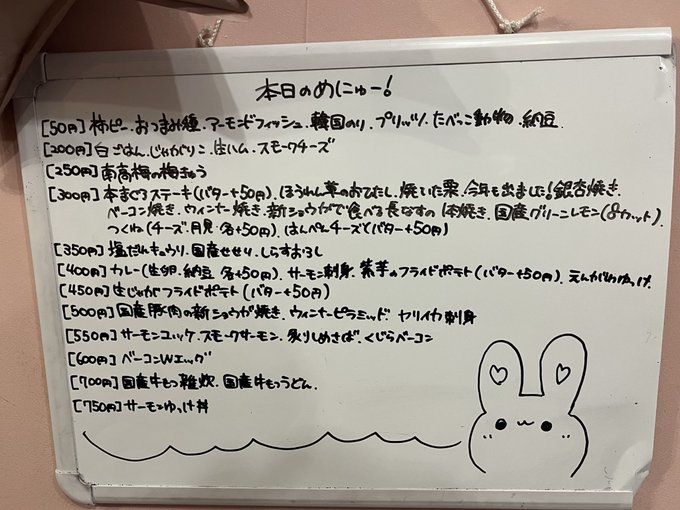 本日のめにゅー!
[50円]柿ピー.おつまみ種.アーモンドフィッシュ.韓国のり.プリッツ.たべっこ動物.納豆
[200円]白ごはん.じゃがりこ.生ハム.スモークチーズ
[250円]南高梅の梅きゅう
[300円]本まぐろステーキ(バター+50円).ほうれん草のおひたし.焼いた栗.今年も出ました!銀杏焼き.
ベーコン焼き.ウィンナー焼き.新ショウガで食べる長なすの1本焼き.国産グリーンレモン(8カット).
つくね(チーズ.月見.各+50円).はんぺんチーズ(バター+50円)
[350円]塩だれキュウリ.国産せせり.しらすおろし
[400円]カレー(生卵.納豆.各+50円).サーモン刺身.紫芋のフライドポテト(バター+50円).えんがわゆっけ.
[450円]生じゃがフライドポテト(バター+50円)
[500円]国産豚肉の新ショウが焼き.ウィンナーピラミッド.ヤリイカ刺身
[550円]サーモンユッケ.スモークサーモン.炙りしめさば.くじらベーコン
[600円]ベーコンWエッグ
[700円]国産牛もつ雑炊.国産牛もつうどん.
[750円]サーモンゆっけ丼